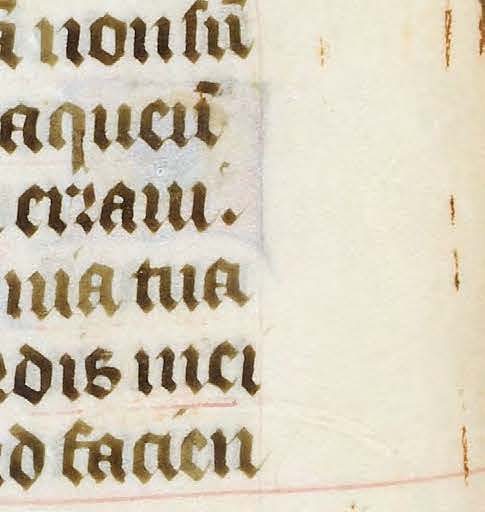 ā non sū
aqueū
erraui.
nia tua
rdis mei
d facien